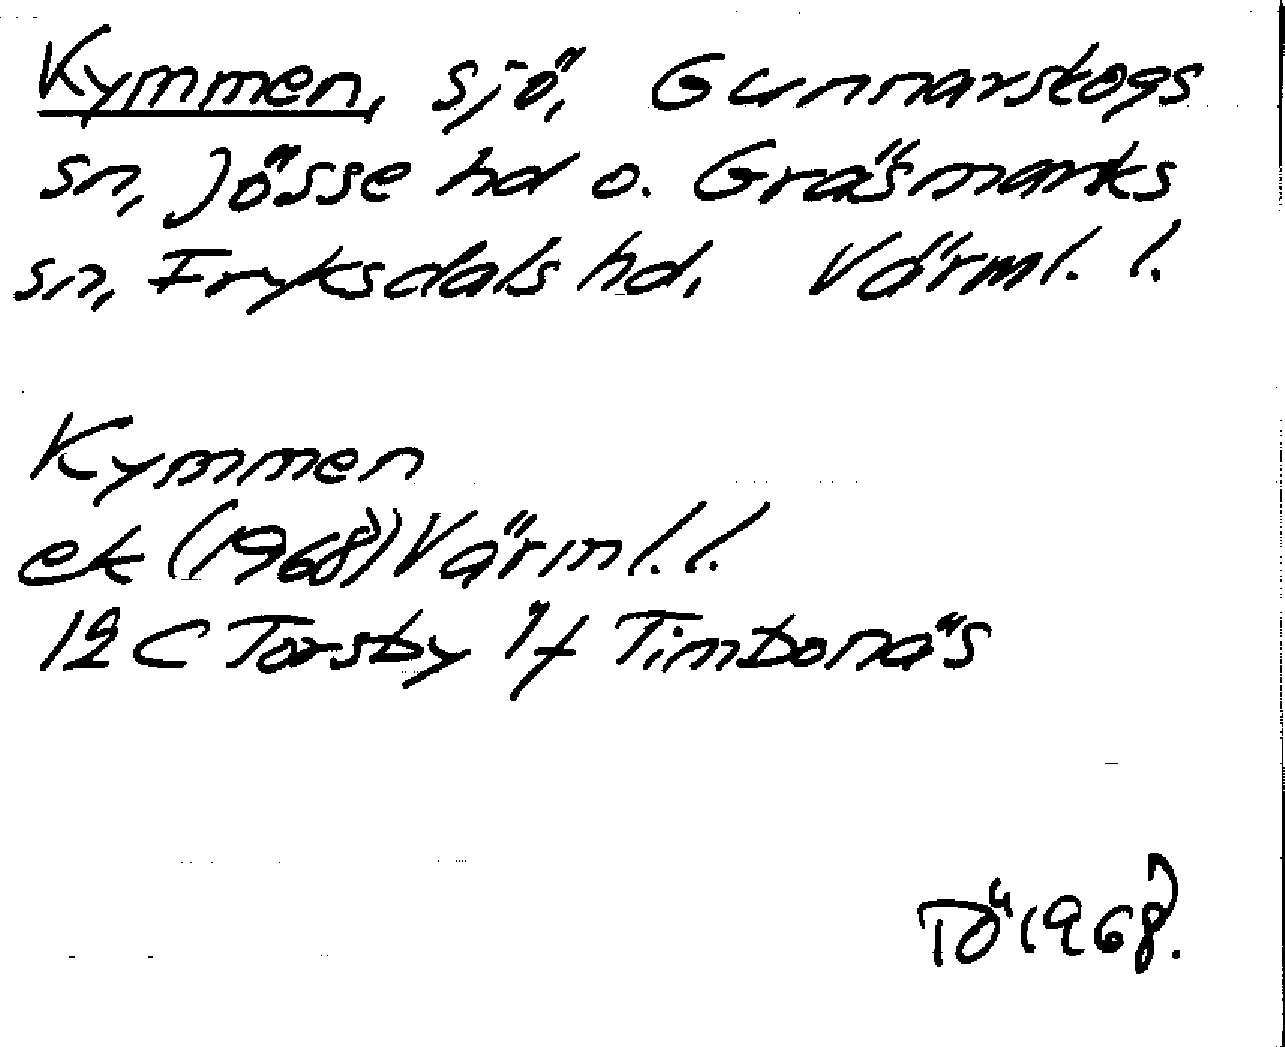 Kymmen, sjö, Gunnarskogs
sn, Jösse hd o. Gräsmarks
sn, Fryksdals hd. Värml. l.
Kymmen
ek (1968) Värml. l.
12 C Torsby Timbonäs
TÖ 1968.